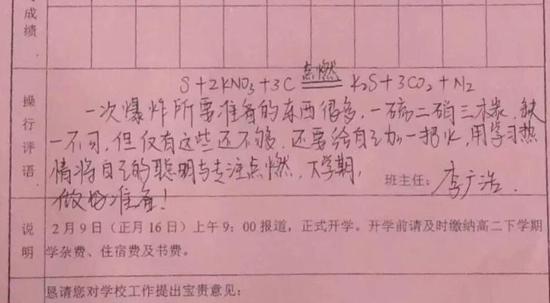 成绩
点燃
S+2KNO3+3C═══K2S+3CO2+N2
操行评语
一次爆炸所要准备的东西很多，一硫二硝三木炭，缺
一不可，但仅有这些还不够，还要给自己加一把火，用学习热
情将自己的聪明与专注点燃，下学期，
做好准备！
班主任：李广浩
说明
2月9日（正月16日）上午9：00报道，正式开学。开学前请及时缴纳高二下学期
学杂费、住宿费及书费。
恳请您对学校工作提出宝贵意见：